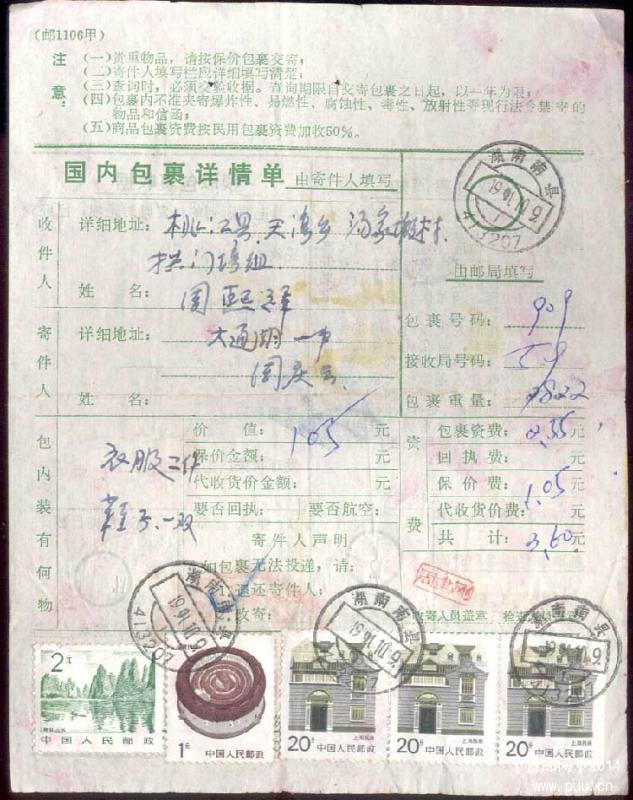 （邮1106甲）
注意：
（一）贵重物品，请按保价包裹交寄；
（二）寄件人填写栏应详细填写清楚；
（三）查询时，必须交验收据。查询期限自交寄包裹之日起，以一年为限；
（四）包裹内不准夹寄爆炸性、易燃性、腐蚀性、毒性、放射性等现行法令禁寄的
物品和信函；
（五）商品包裹资费按民用包裹资费加收50%。
国内包裹详情单 由寄件人填写
湖南南县
1991.10.9
413207
收件人
详细地址：桃江县
组
姓名：周熙
由邮局填写
寄件人
详细地址：大通湖一中
姓名：周庆云
包裹号码：909
接收局号码：
包裹重量：
包内装有何物
衣服二件
鞋子一双
价值：105元
保价金额：元
代收货价金额：元
要否回执： 要否航空：
寄件人声明
如包裹无法投递，请：
退还寄件人：
改寄：
资费
包裹资费：2.55元
回执费：元
保价费：1.05元
代收货价费：元
共计：3.60元
收寄人员盖章
湖南南县
1991.10.9
413207
湖南南县
1991.10.9
湖南南县
1991.10.9
413207
2元
桂林山水
中国人民邮政
1元
中国人民邮政
20分
上海民居
中国人民邮政
20分
上海民居
中国人民邮政
20分
上海民居
中国人民邮政
2014
www.puu.cn